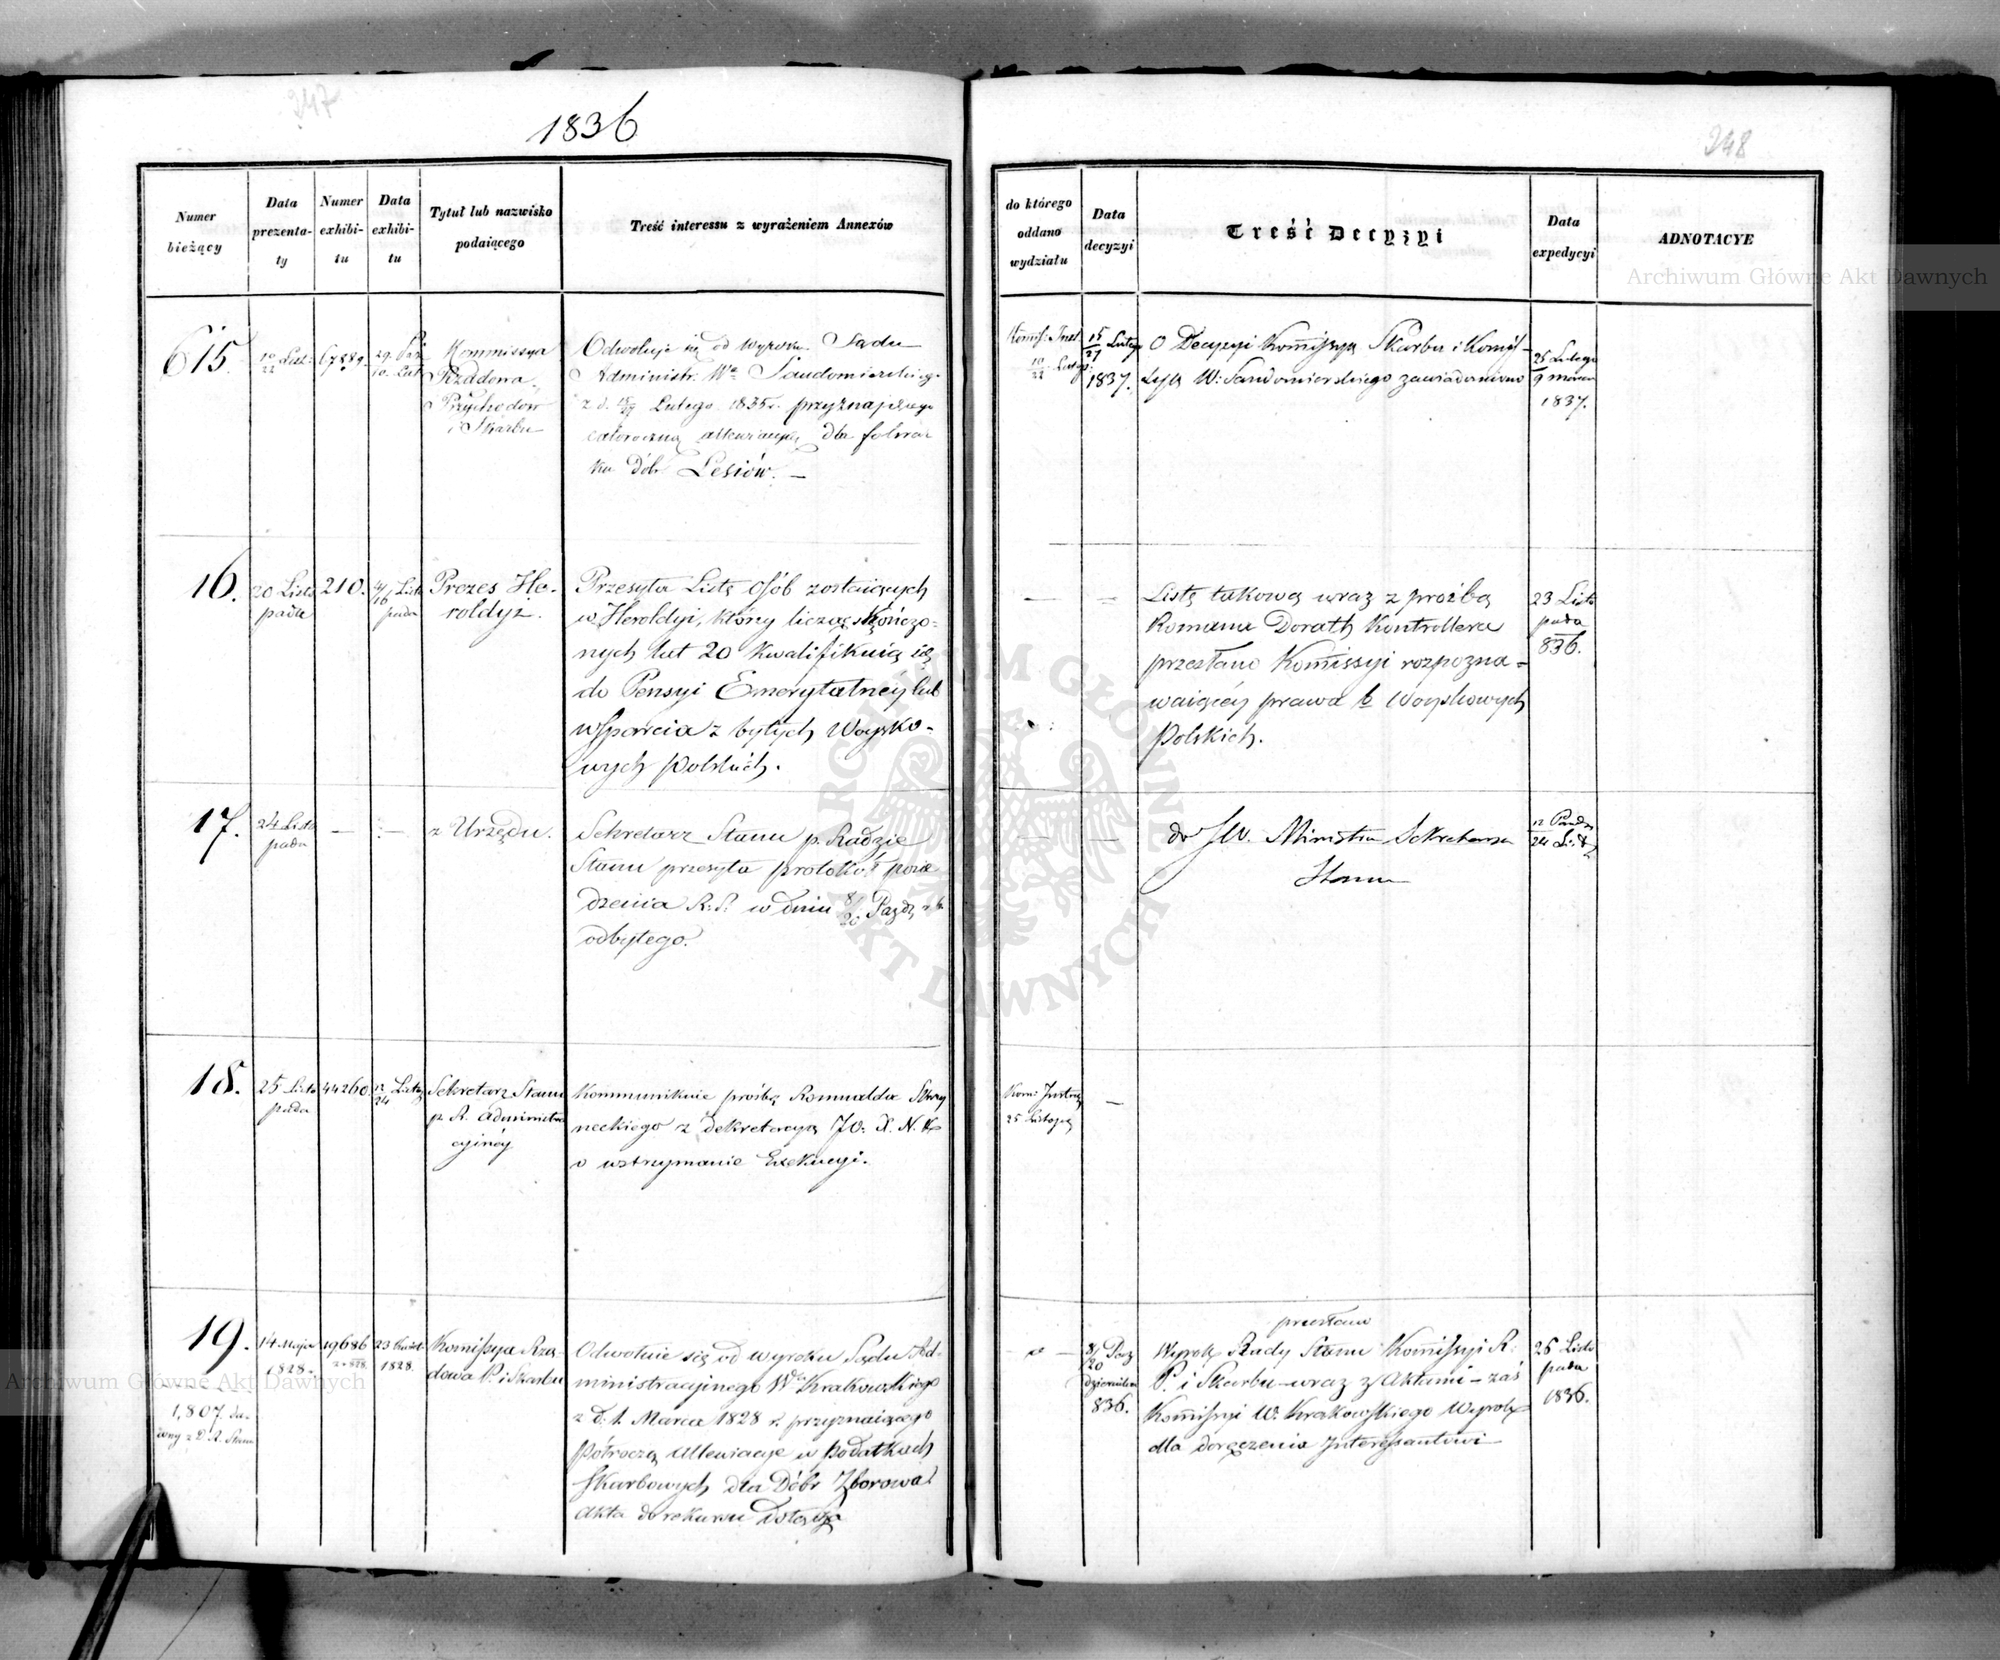 247
1836
Numer bieżący
Data prezenta-ty
Numer exhibi-tu
Data exhibi-tu
Tytuł lub nazwisko podaiącego
Treść interessu z wyrażeniem Annexów
615.
10/22 List:
67889.
Kommissya
Rządowa
Przychodów
i Skarbu
Odwołuje się od wyroku Sądu
Administr. Wa Sandomierskiego
z d. Lutego 1835 r. przyznającego
całoroczną allewiacyę dla folwar
ku dóbr Lesiów. —
16.
20 Listo
pada
210.
4/16 Listo
pada
Prezes He-
roldyi.
Przesyła Listę osób zostaiących
w Heroldyi, którzy licząc skończo-
nych lat 20 kwalifikuią się
do Pensyi Emerytalney lub
wsparcia z byłych Woysko-
wych polskich.
17.
24 Listo
pada
—
—
z Urzędu.
Sekretarz Stanu p. Radzie
Stanu przesyła protokół posie
dzenia R: S: w dniu 8/20 Paźdz
odbytego.
18.
25 Listo
pada
44260.
12/24 Listop
Sekretarz Stanu
p. R. Administra
cyjnéy
Kommunikuie prośbę Romualda
neckiego z dekretacyą JO. X. N. K
o wstrzymanie Exekucyi.
19.
14 Maja
1828.
19686
23 Kwiet.
1828.
Kommissya Rzą-
dowa P. i Skarbu
Odwołuie się od wyroku Sądu Ad-
ministracyjnego Wa Krakowskiego
z d. 1. Marca 1828 r. przyznaiącego
półroczą allewiacyę w podatkach
skarbowych dla Dóbr Zborowa
akta do rekursu dołącza
1,807.
248
do którego oddano wydziału
Data decyzyi
Treść Decyzyi
Data expedycyi
ADNOTACYE
10/22 Lutego
15/27 Lutego
1837.
O Decyzyi Kommissya Skarbu i Komis-
sya W: Sandomierskiego zawiadomiono
25 Lutego
9 marca
1837.
Listę takową wraz z prośbą
Romana Dorath Kontrollera
przesłano Kommissyi rozpozna-
waiącéy prawa b Woyskowych
Polskich.
23 Listo
pada
836.
do JW. Ministra Sekretarza
Stanu
12 Paźdz
Kom: Justic
25 Listopa
—
8/20 Paź
dziernika
836.
przesłano
Wyrok Rady Stanu Kommissyi R:
P. i Skarbu wraz z Aktami — zaś
Kommissyi W: Krakowskiego Wyrok
dla doręczenia Interessantowi
26 Listo
pada
1836.
Archiwum Główne Akt Dawnych
Archiwum Główne Akt Dawnych
ARCHIWUM GŁÓWNE AKT DAWNYCH